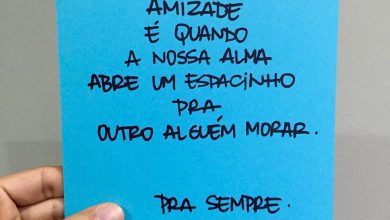 AMIZADE
É QUANDO
A NOSSA ALMA
ABRE UM ESPACINHO
PRA
OUTRO ALGUÉM MORAR.
PRA SEMPRE.